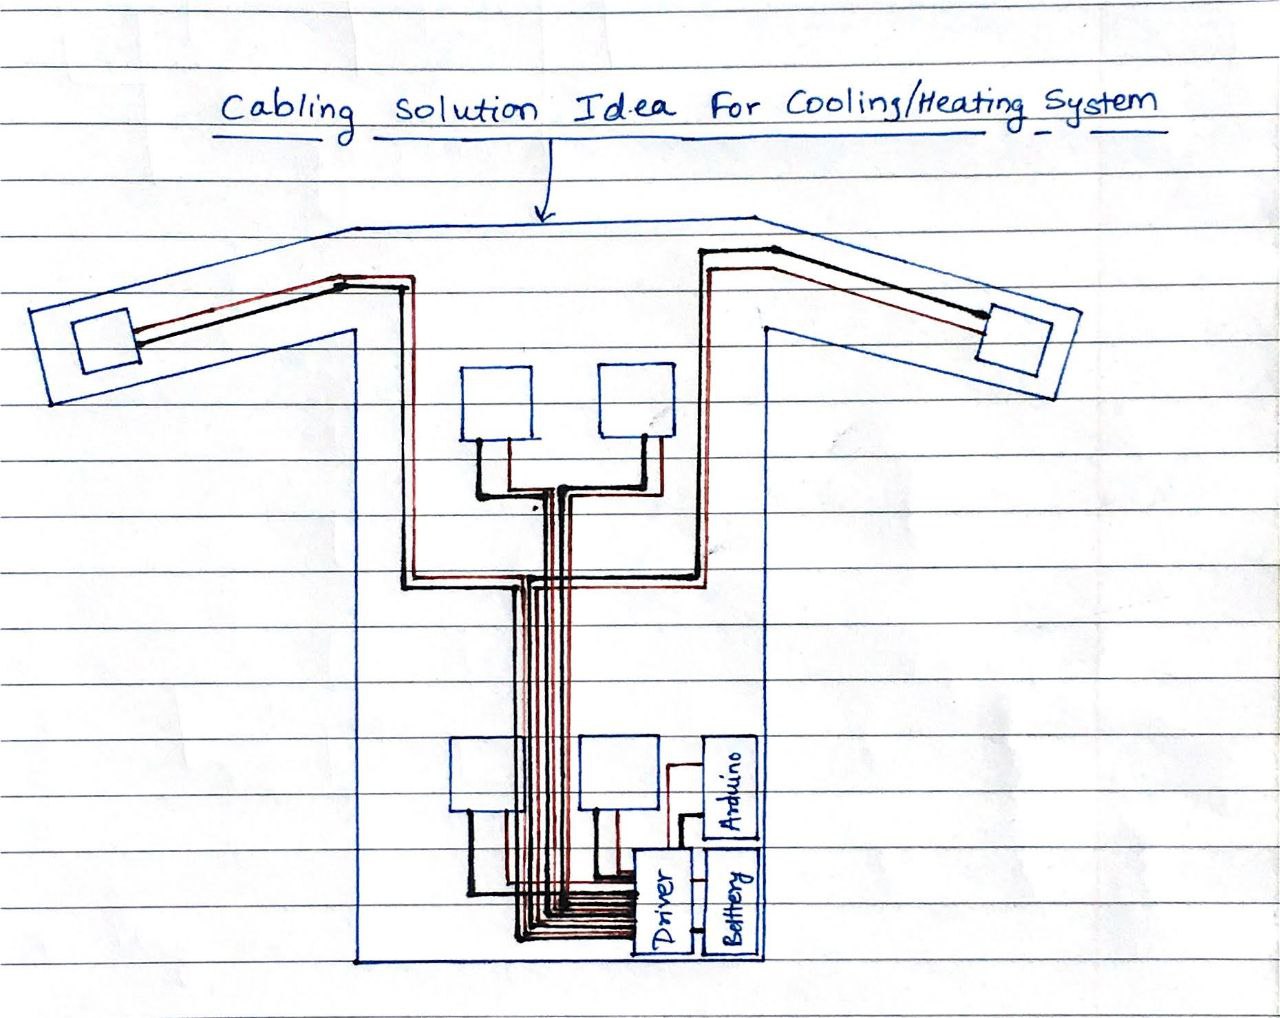 Cabling Solution Idea For Cooling/Heating System
Arduino
Driver
Bettery